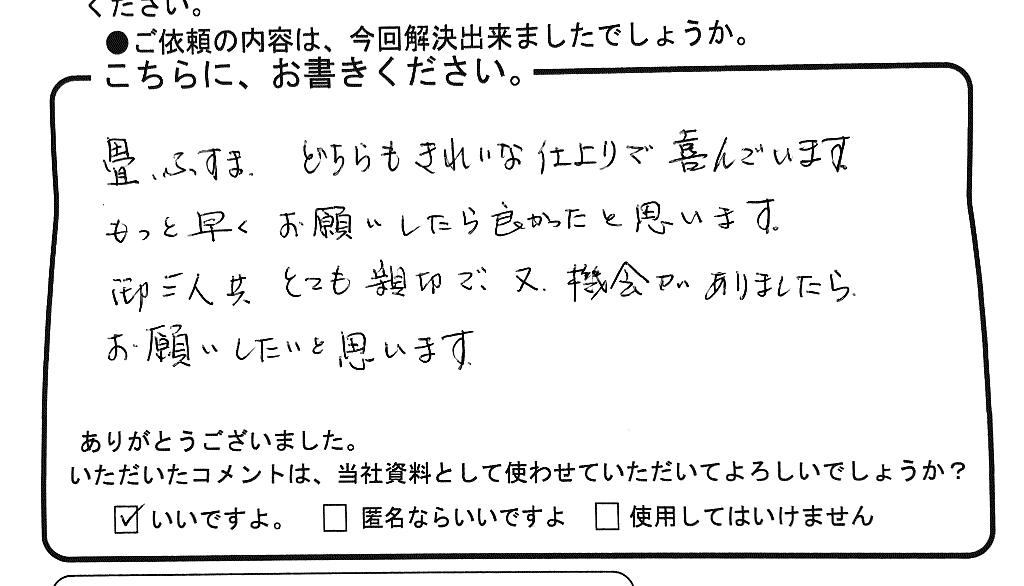 ください。
●ご依頼の内容は、今回解決出来ましたでしょうか。
こちらに、お書きください。
畳、ふすま、どちらもきれいな仕上りで喜んでいます。
もっと早くお願いしたら良かったと思います。
御三人共とても親切で、又、機会がありましたら、
お願いしたいと思います。
ありがとうございました。
いただいたコメントは、当社資料として使わせていただいてよろしいでしょうか？
☑いいですよ。 □匿名ならいいですよ □使用してはいけません